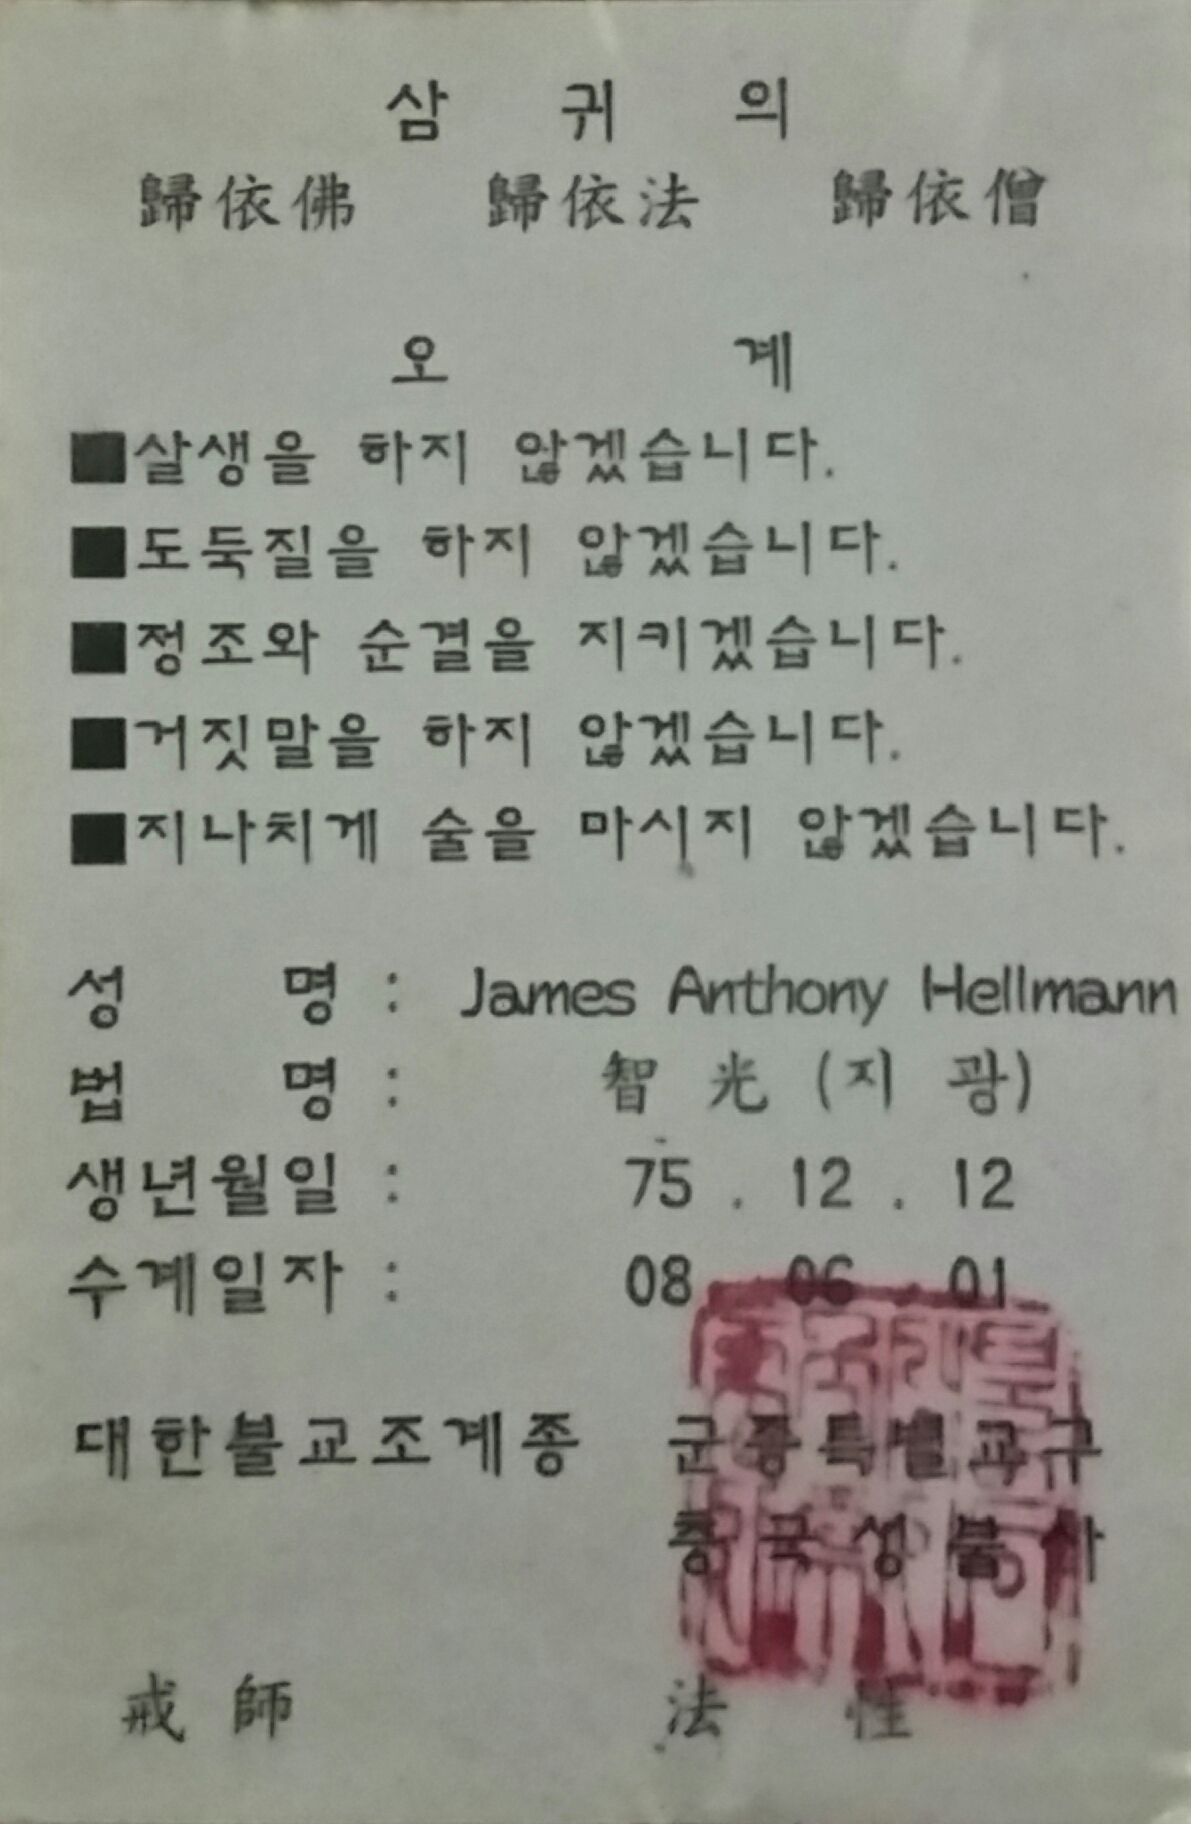 삼 귀 의
歸依佛 歸依法 歸依僧
오 계
■살생을 하지 않겠습니다.
■도둑질을 하지 않겠습니다.
■정조와 순결을 지키겠습니다.
■거짓말을 하지 않겠습니다.
■지나치게 술을 마시지 않겠습니다.
성 명 : James Anthony Hellmann
법 명 : 智 光 (지 광)
생년월일 : 75 . 12 . 12
수계일자 : 08 . 06 . 01
대한불교조계종 군종특별교구
충국성불사
戒 師 法 性